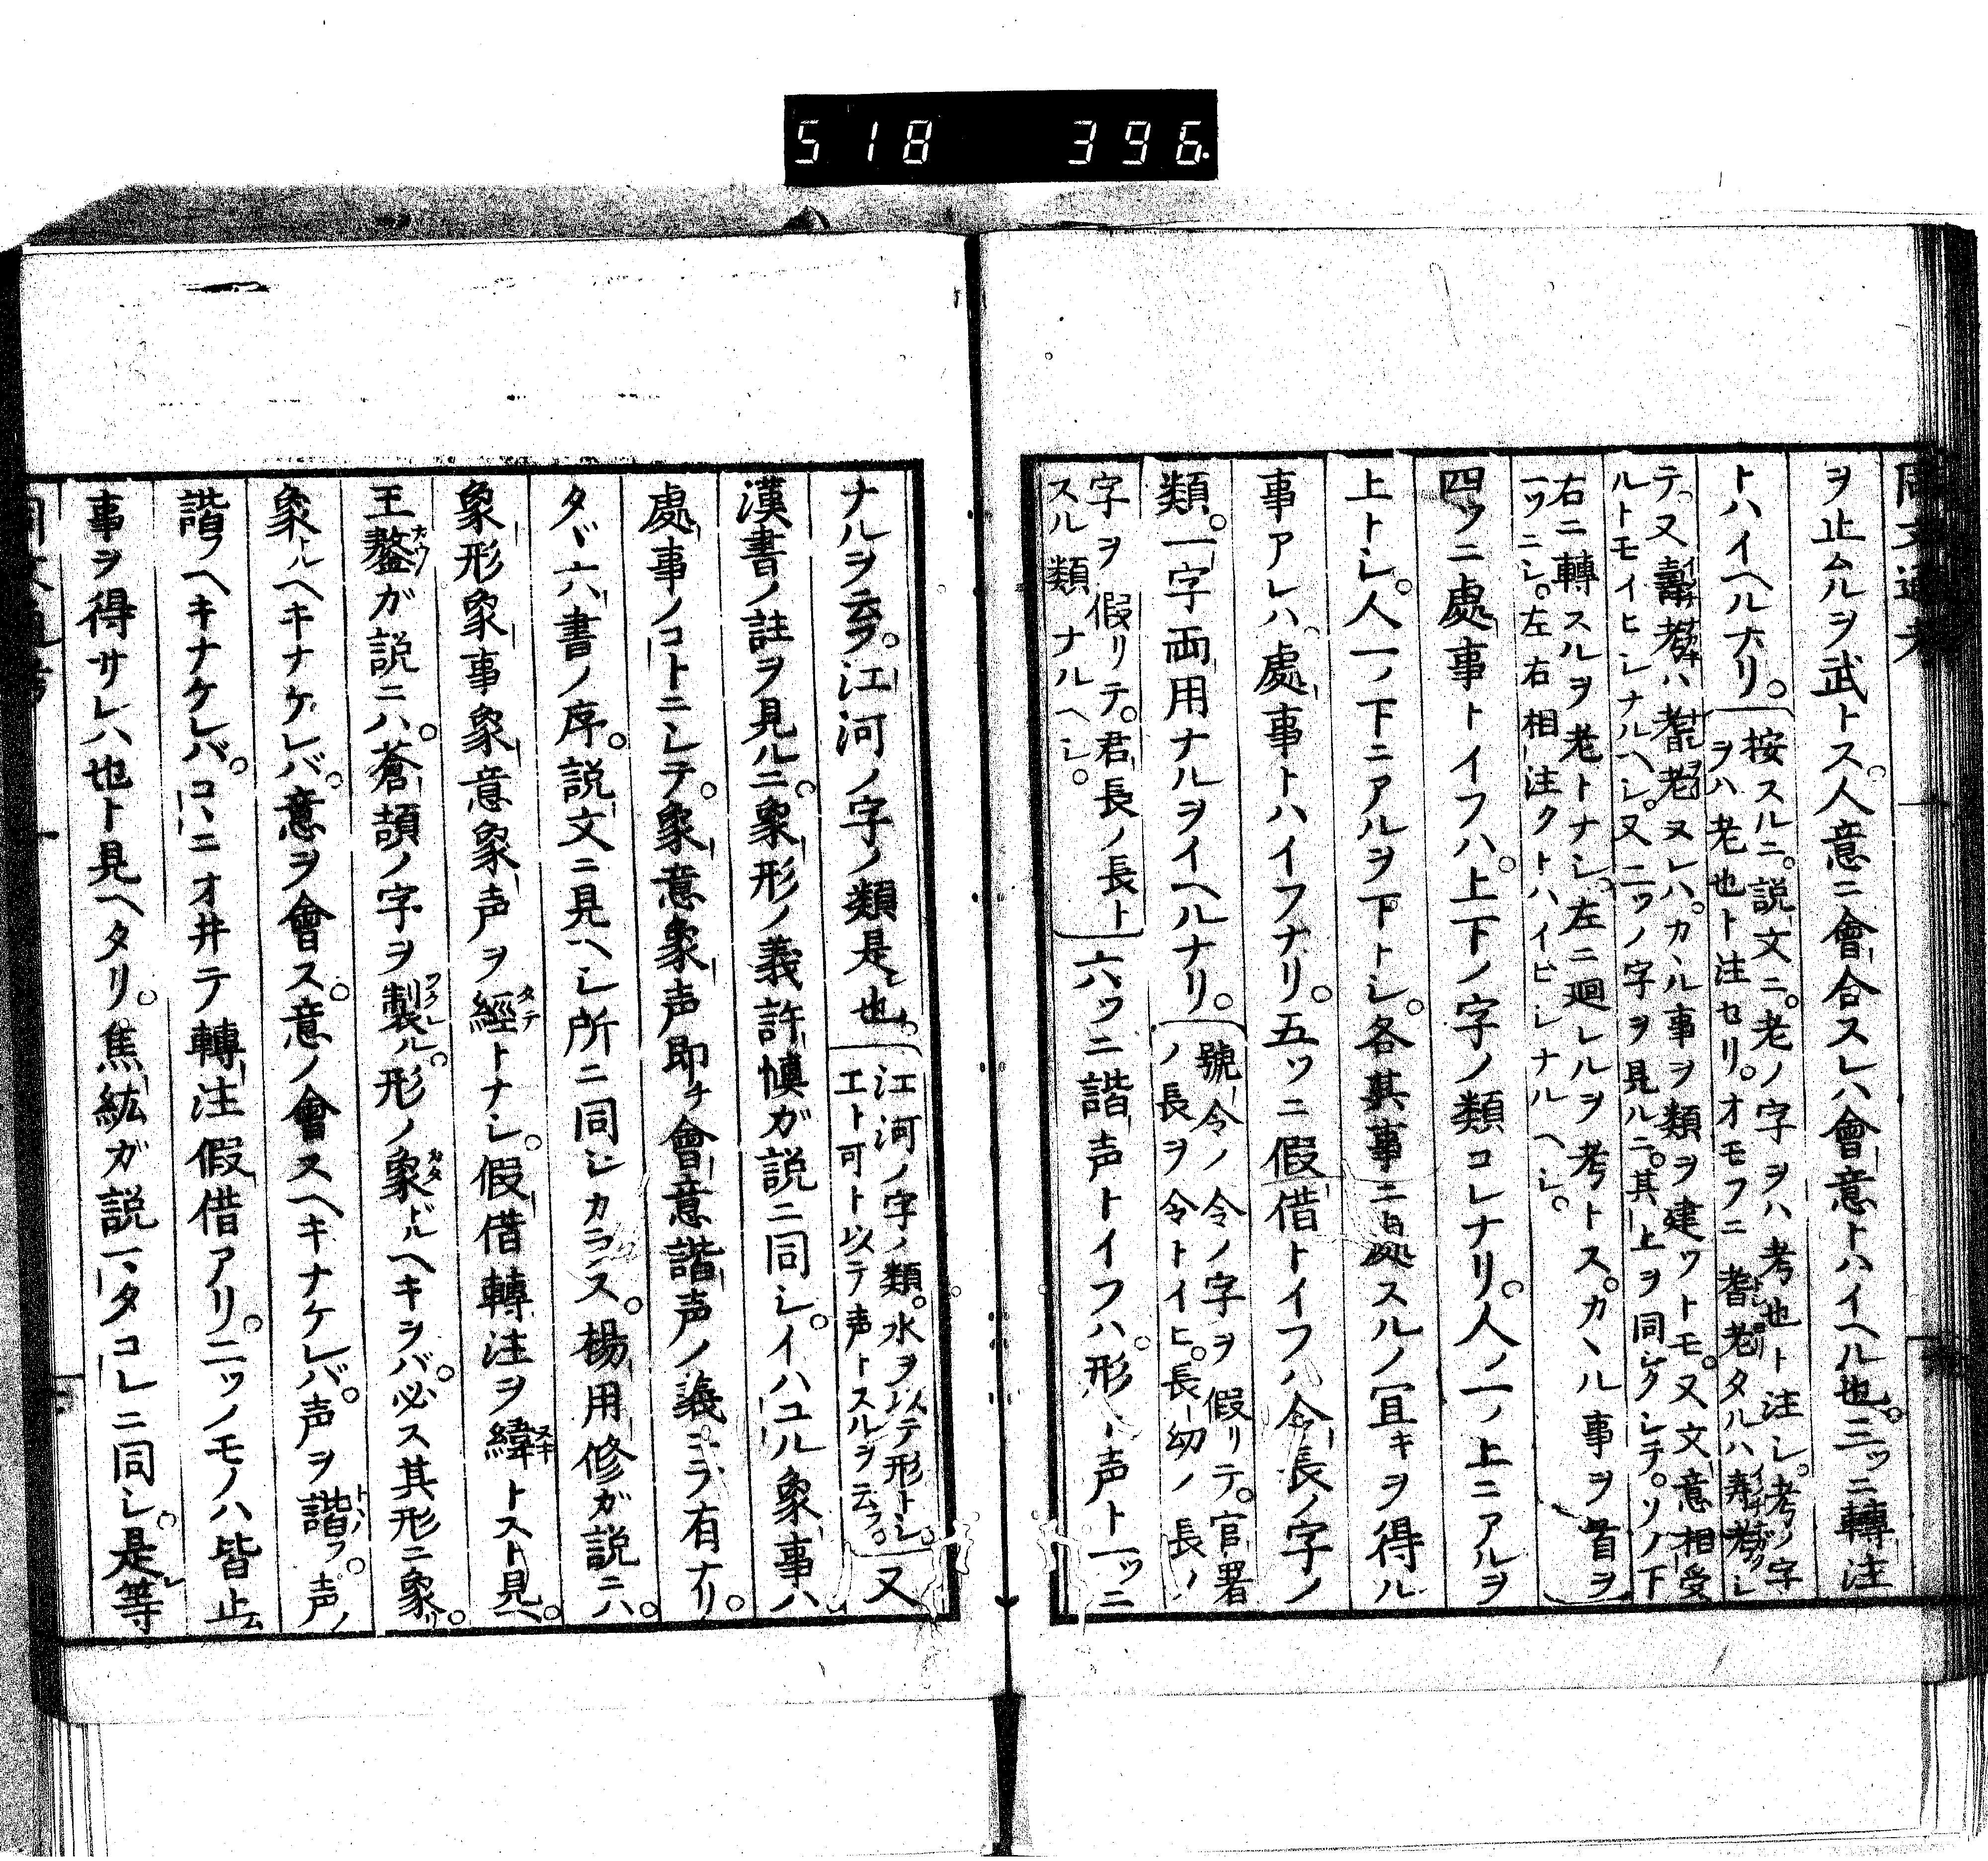 518 396
同文通考
ヲ止ムルヲ武トス。人意ニ會合スレハ會意トハイヘル也。三ツニ轉注
トハイヘルナリ。
按スルニ。説文ニ。老ノ字ヲハ考也ト注シ。考ノ字
ヲハ老也ト注セリ。オモフニ耆老タルハ壽考
テ。又壽考ハ耆老ヌレハ。カヽル事ヲ類ヲ建ツトモ。又文意相受
ルトモイヒシナルヘシ。又二ツノ字ヲ見ルニ。其上ヲ同シクシテ。ソノ下
右ニ轉スルヲ老トナシ。左ニ廻レルヲ考トス。カヽル事ヲ首ヲ
一ツニシ。左右相注クトハイヒシナルヘシ。
四ツニ處事トイフハ。上下ノ字ノ類コレナリ。人ノ一ノ上ニアルヲ
上トシ。人一ノ下ニアルヲ下トシ。各其事ニ處スルノ宜キヲ得ル
事アレハ。處事トハイフナリ。五ツニ假借トイフハ。令長ノ字ノ
類。一字両用ナルヲイヘルナリ。
號令ノ令ノ字ヲ假リテ。官署
ノ長ヲ令トイヒ。長幼ノ長ノ
字ヲ假リテ。君長ノ長ト
スル類ナルヘシ。
六ツニ諧声トイフハ。形ト声ト一ツニ
ナルヲ云フ。江河ノ字ノ類是也。
江河ノ字ノ類。水ヲ以テ形トシ。
工ト可ト以テ声トスルヲ云フ。
又
漢書ノ註ヲ見ルニ。象形ノ義許慎ガ説ニ同シ。イハユル象事ハ
處事ノコトニシテ。象意象声即チ會意諧声ノ義ニテ有ナリ。
タヾ六書ノ序。説文ニ見ヘシ所ニ同シカラス。楊用修ガ説ニハ。
象形象事象意象声ヲ經トナシ。假借轉注ヲ緯トスト見ヘ。
王鏊ガ説ニハ。蒼頡ノ字ヲ製ル。形ノ象ドルヘキヲバ。必ス其形ニ象ツ。
象ルヘキナケレバ。意ヲ會ス。意ノ會スヘキナケレバ。声ヲ諧フ。声ノ
諧フヘキナケレバ。コヽニオ井テ轉注假借アリ。二ツノモノハ皆止ム
事ヲ得サレハ也ト見ヘタリ。焦紘ガ説マタコレニ同シ。是等